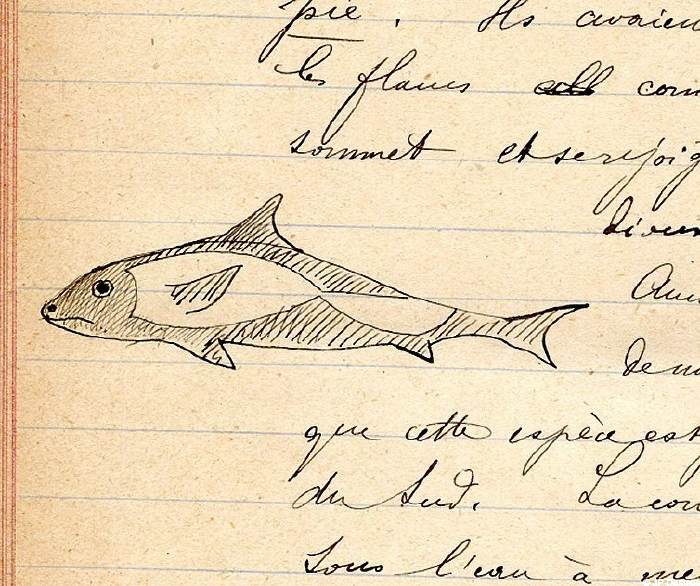 pie. Ils avaien
les flancs com
sommet et se rejoig
divers
Au
de m
que cette espèce est
du Sud. La cou
sous l'eau à me